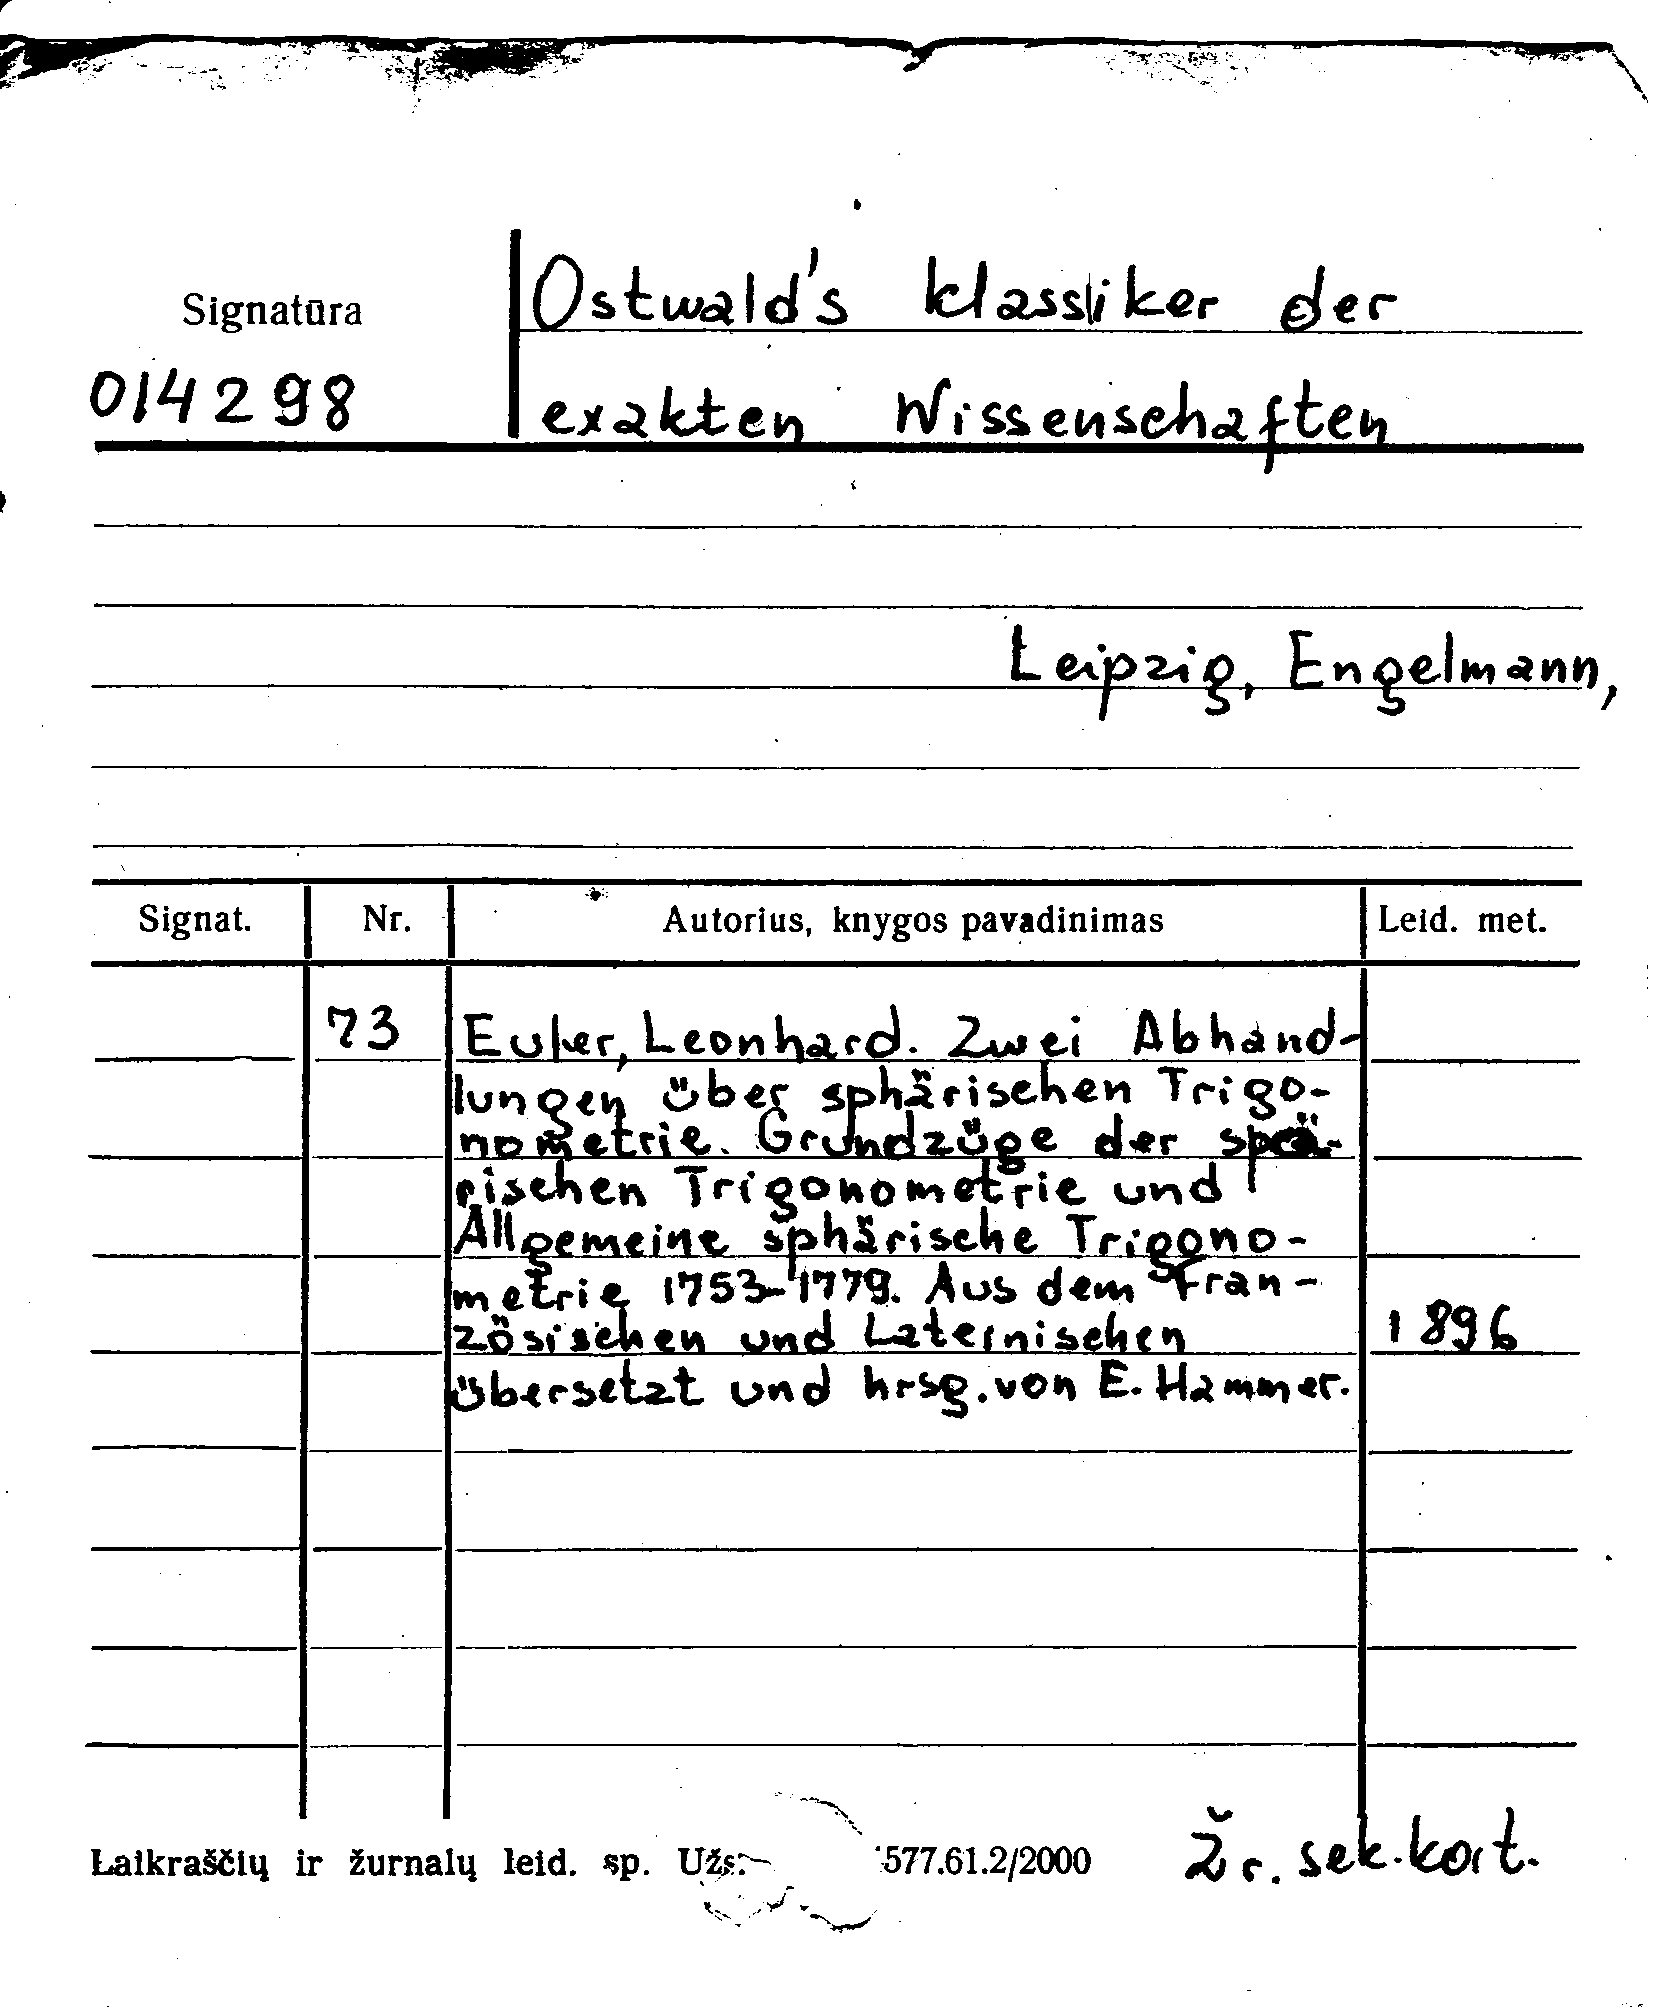 Signatūra
014298
Ostwald's Klassiker der
exakten Wissenschaften
Leipzig, Engelmann,
Signat. Nr. Autorius, knygos pavadinimas Leid. met.
73 Euler, Leonhard. Zwei Abhand-
lungen über sphärischen Trigo-
nometrie. Grundzüge der spä-
rischen Trigonometrie und
Allgemeine sphärische Trigono-
metrie 1753-1779. Aus dem Fran-
zösischen und Lateinischen 1896
übersetzt und hrsg. von E. Hammer.
Laikraščių ir žurnalų leid. sp. Užs. 577.61.2/2000
Žr. sek. kort.